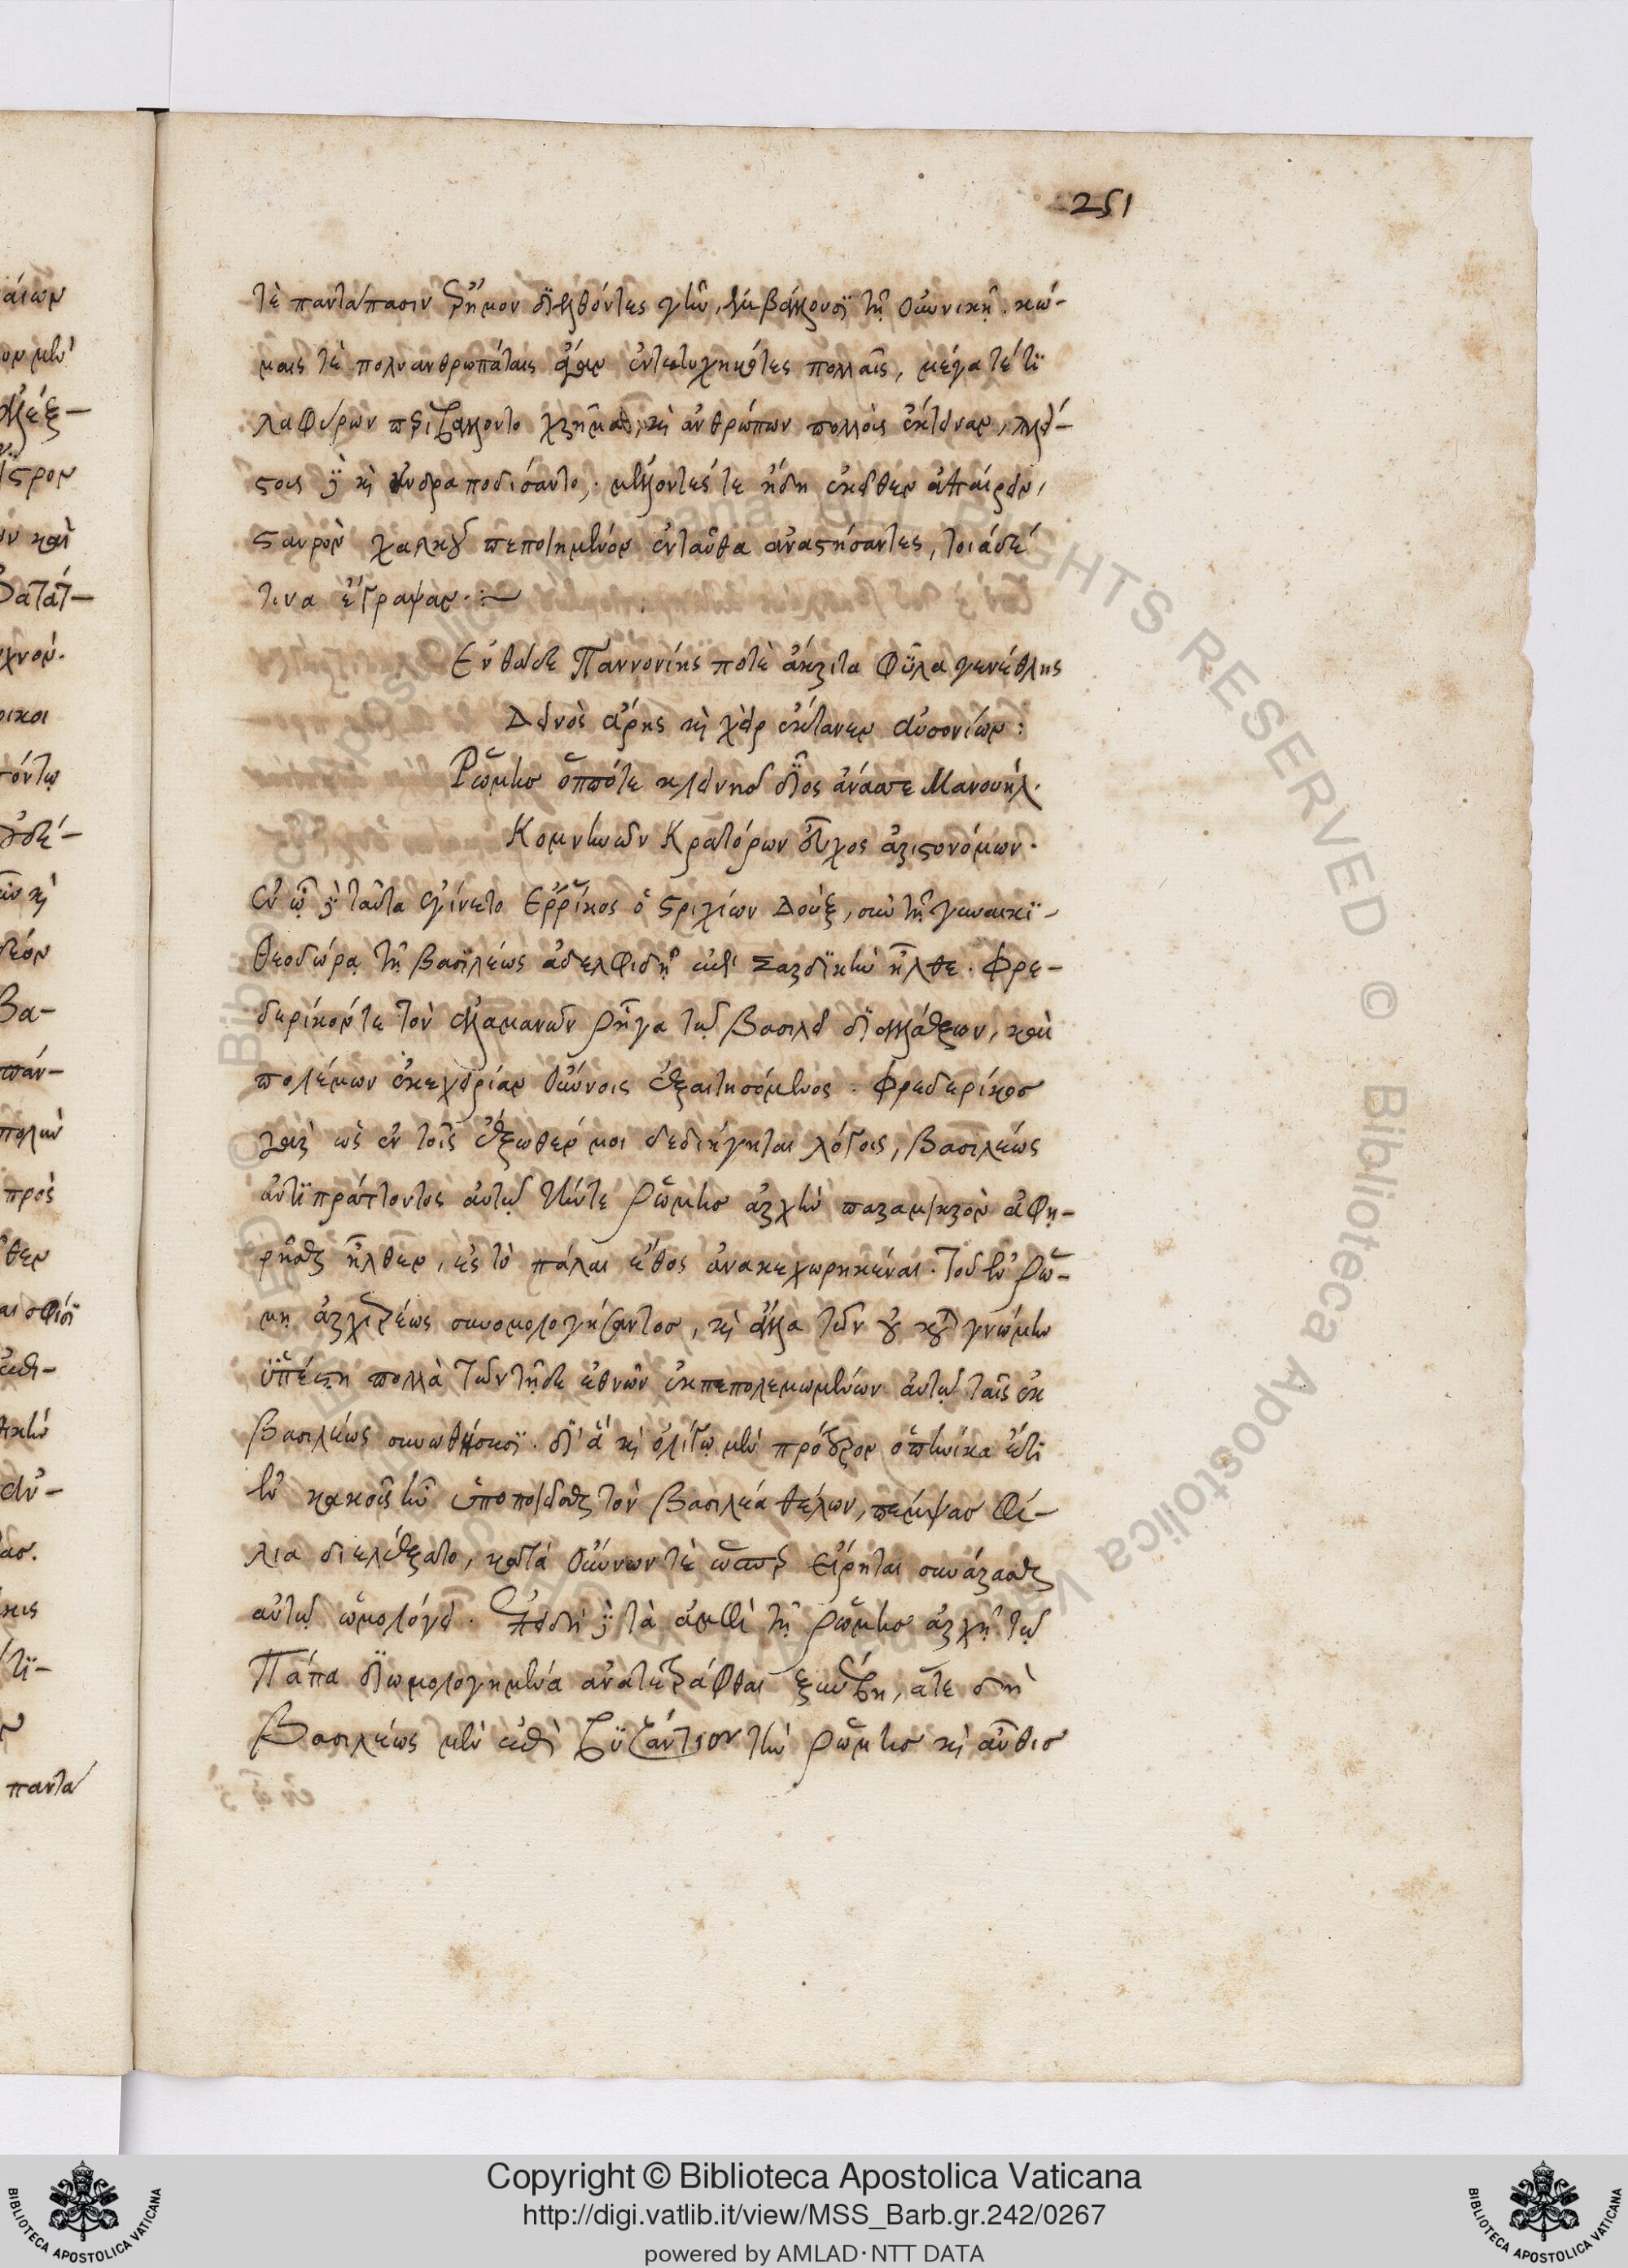 251
τὲ παντάπασιν ἔρημον διελθόντες γῆν, ἐμβάλλουσι τῇ οὐννικῇ. κώ-
μαις τὲ πολυανθρωπάταις ἄγαν ἐντετυχηκότες πολλαῖς, μέγα τέ τι
λαφύρων περιεβάλλοντο χρῆμα, καὶ ἀνθρώπων πολλοὺς ἔκτειναν, πλεί-
στους δὲ καὶ ἠνδραποδίσαντο, μέλλοντές τε ἤδη ἐκεῖθεν ἀπαίρειν,
σταυρὸν χαλκοῦ πεποιημένον ἐνταῦθα ἀναστήσαντες, τοιάδέ
τινα ἔγραψαν.
Ἐνθάδε Παννονίης ποτὲ ἄκριτα φῦλα γενέθλης
Δεινὸς ἄρης καὶ χεὶρ ἔκτανεν αὐσονίων:
Ῥώμης ὁππότε κλεινῆς δῖος ἄνασσε Μανουήλ.
Κομνηνῶν Κρατόρων εὖχος ἀριστονόμων.
Ἐν ᾧ δὲ ταῦτα ἐγίνετο Ἐρρίκος ὁ στριχίων Δοὺξ, σὺν τῇ γυναικὶ
Θεοδώρᾳ τῇ βασιλέως ἀδελφιδῇ ἐπὶ Σαρδικὴν ἦλθε. Φρε-
δερίκόν τε τὸν ἀλαμανῶν ῥῆγα τῷ βασιλεῖ διαλλάξων, καὶ
πολέμων ἐκεχειρίαν οὔννοις ἐξαιτησόμενος. Φρεδερίκος
γὰρ ὡς ἐν τοῖς ἔξωθέν μοι δεδιήγηται λόγοις, βασιλέως
ἀντιπράττοντος αὐτῷ τήν τε ῥώμης ἀρχὴν παραμικρὸν ἀφῃ-
ρῆσθαι ἦλθεν, εἰς τὸ πάλαι ἔθος ἀνακεχωρηκέναι. τοῦ ἐν ῥώ-
μῃ ἀρχιερέως συνομολογήσαντος, καὶ ἄλλα τῶν οὐ κατὰ γνώμην
ὑπέστη πολλὰ τῶν τῇδε ἐθνῶν ἐκπεπολεμωμένων αὐτῷ ταῖς ἐκ
βασιλέως συνωθήσεσι. δι' ἃ καὶ ὀλίγῳ μὲν πρότερον ὁπηνίκα ἔτι
ἐν κακοῖς ἦν ὑποποιεῖσθαι τὸν βασιλέα θέλων, πέμψας φί-
λια διελέξατο, κατὰ οὔννων τὲ ὥσπερ εἴρηται συνάρασθαι
αὐτῷ ὡμολόγει. Ἐπειδὴ δὲ τὰ ἀμφὶ τῇ ῥώμης ἀρχῇ τῷ
Πάπα διωμολογημένα ἀνατετράφθαι ξυνέβη, ἅτε δὴ
βασιλέως μὲν ἐπὶ βυζάντιον τὴν ῥώμης καὶ αὖθις